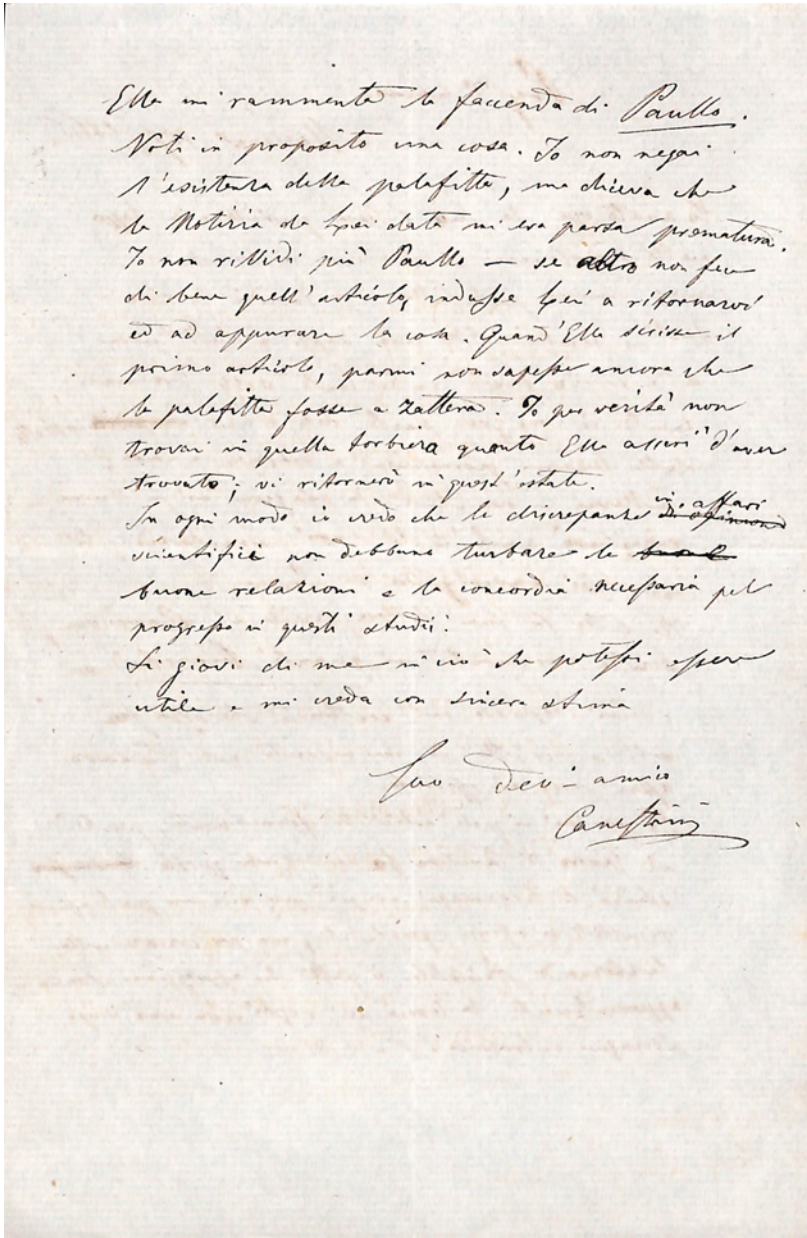 Ella mi rammenta la faccenda di Paullo.
Noti in proposito una cosa. Io non negai
l'esistenza della palafitta, ma diceva che
la Notizia da Lei data mi era parsa prematura.
Io non rividi più Paullo — se altro non fece
di bene quell'articolo, indusse Lei a ritornarvi
ed ad appurare la cosa. Quand'Ella scrisse il
primo articolo, parmi non sapesse ancora che
la palafitta fosse a zattera. Io per verità non
trovai in quella torbiera quanto Ella asserì d'aver
trovato; vi ritornerò in quest'estate.
In ogni modo io credo che le discrepanze in affari
scientifici non debbano turbare le
buone relazioni e la concordia necessaria pel
progresso in questi studii.
Si giovi di me in ciò che potessi essere
utile e mi creda con sincera stima
Suo dev- amico
Canestrini